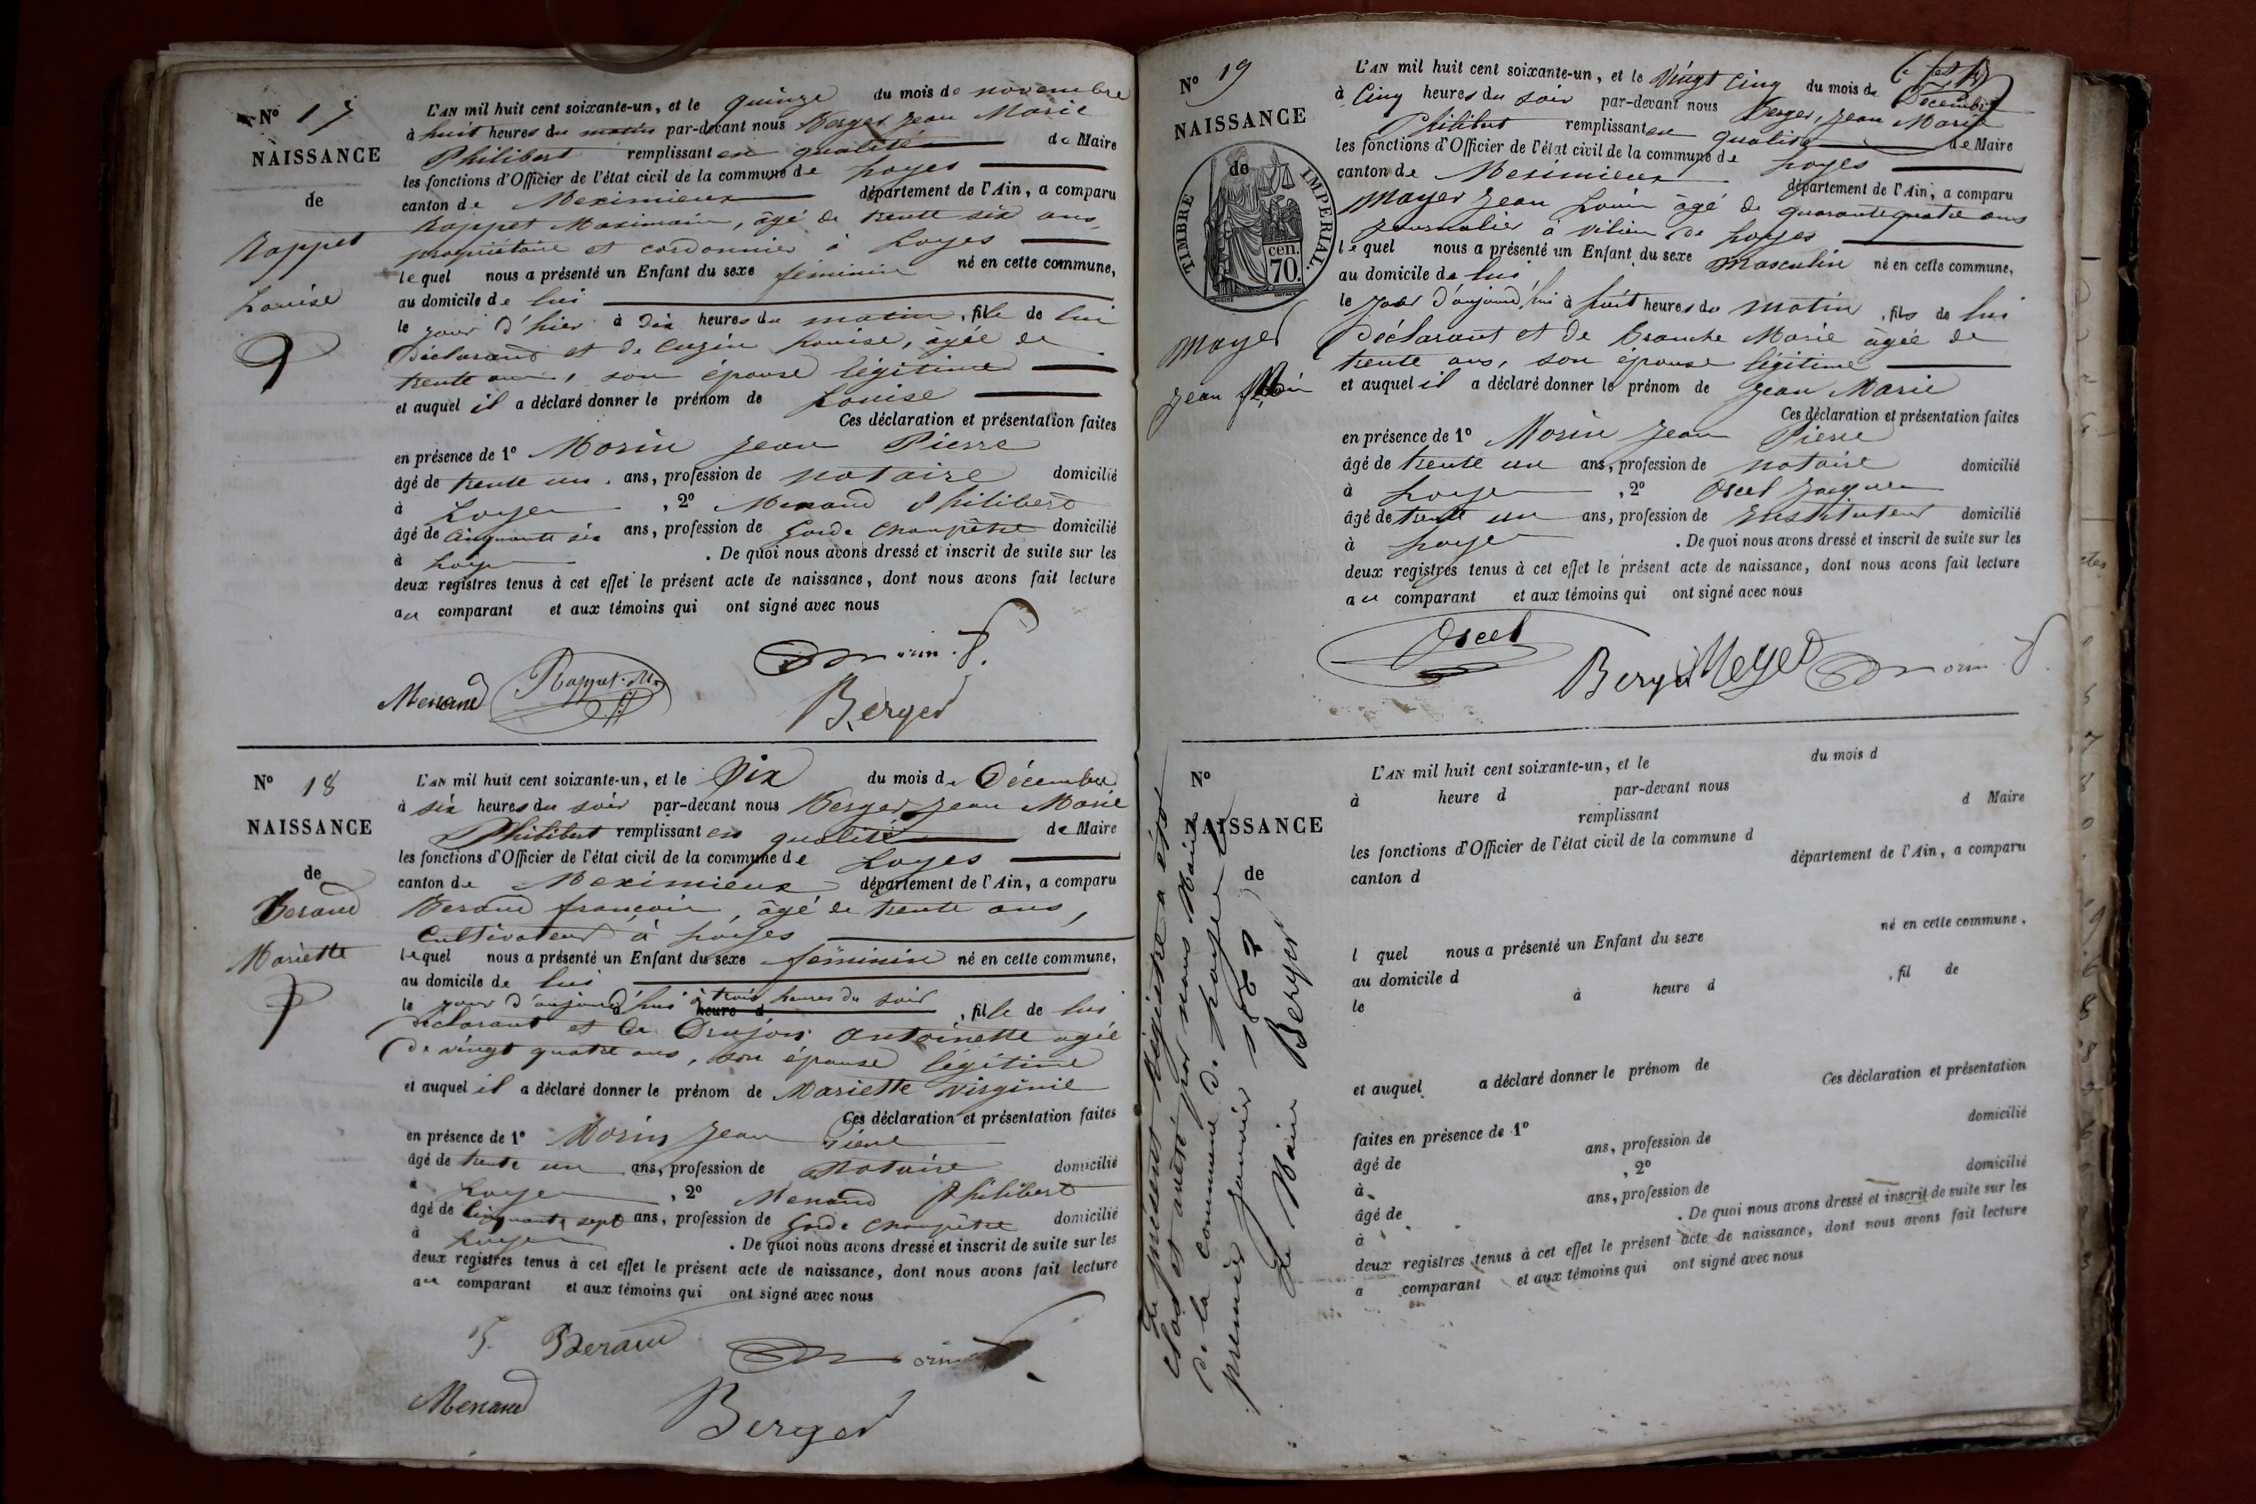 N° 17
NAISSANCE
de
Rappet
Louise
L'AN mil huit cent soixante-un, et le quinze du mois de novembre
à huit heures du matin par-devant nous Berger Jean Marie
Philibert remplissant en qualité de Maire
les fonctions d'Officier de l'état civil de la commune de Loyes
canton de Meximieux département de l'Ain, a comparu
Rappet Maximain, âgé de trente six ans,
propriétaire et cordonnier à Loyes
lequel nous a présenté un Enfant du sexe féminin né en cette commune,
au domicile de lui
le jour d'hier à dix heures du matin, fille de lui
déclarant et de Cuzin Louise, âgée de
trente ans, son épouse légitime
et auquel il a déclaré donner le prénom de Louise
Ces déclaration et présentation faites
en présence de 1° Morin Jean Pierre
âgé de trente un ans, profession de notaire domicilié
à Loyes, 2° Menand Philibert
âgé de cinquante six ans, profession de Garde Champêtre domicilié
à Loyes. De quoi nous avons dressé et inscrit de suite sur les
deux registres tenus à cet effet le présent acte de naissance, dont nous avons fait lecture
au comparant et aux témoins qui ont signé avec nous
Morin
Menand Rappet. M.
Berger
N° 18
NAISSANCE
de
Beraud
Mariette
L'AN mil huit cent soixante-un, et le Dix du mois de Décembre
à six heures du soir par-devant nous Berger Jean Marie
Philibert remplissant en qualité de Maire
les fonctions d'Officier de l'état civil de la commune de Loyes
canton de Meximieux département de l'Ain, a comparu
Beraud françois, âgé de trente ans,
Cultivateur à Loyes
lequel nous a présenté un Enfant du sexe féminin né en cette commune,
au domicile de lui
le jour d'aujourd'hui à trois heures du soir heure d, fille de lui
déclarant et de Drujon Antoinette agée
de vingt quatre ans, son épouse légitime
et auquel il a déclaré donner le prénom de Mariette Virginie
Ces déclaration et présentation faites
en présence de 1° Morin Jean Pierre
âgé de trente un ans, profession de Notaire domicilié
à Loyes, 2° Menand Philibert
âgé de Cinquante sept ans, profession de Garde Champêtre domicilié
à Loyes. De quoi nous avons dressé et inscrit de suite sur les
deux registres tenus à cet effet le présent acte de naissance, dont nous avons fait lecture
au comparant et aux témoins qui ont signé avec nous
Beraud Morin
Menand
Berger
N° 19
NAISSANCE
de
TIMBRE IMPERIAL.
cen.
70.
Mayer
Jean
L'AN mil huit cent soixante-un, et le Vingt Cinq du mois de Décembre
à Cinq heures du soir par-devant nous Berger, Jean Marie
Philibert remplissant en qualité de Maire
les fonctions d'Officier de l'état civil de la commune de Loyes
canton de Meximieux département de l'Ain, a comparu
Mayer Jean Louis âgé de quarante quatre ans
journalier à vilieu de Loyes
lequel nous a présenté un Enfant du sexe masculin né en cette commune,
au domicile de lui
le jour d'aujourd'hui à huit heures du matin, fils de lui
Déclarant et de Branche Marie âgée de
trente ans, son épouse légitime
et auquel il a déclaré donner le prénom de Jean Marie
Ces déclaration et présentation faites
en présence de 1° Morin Jean Pierre
âgé de trente un ans, profession de notaire domicilié
à Loyes, 2° Oscel Jacques
âgé de trente un ans, profession de Instituteur domicilié
à Loyes. De quoi nous avons dressé et inscrit de suite sur les
deux registres tenus à cet effet le présent acte de naissance, dont nous avons fait lecture
au comparant et aux témoins qui ont signé avec nous
Oscel
Berger Meyer Morin
N°
NAISSANCE
de
L'AN mil huit cent soixante-un, et le du mois d
à heure d par-devant nous
remplissant d Maire
les fonctions d'Officier de l'état civil de la commune d
canton d département de l'Ain, a comparu
l quel nous a présenté un Enfant du sexe né en cette commune.
au domicile d
le à heure d, fil de
et auquel a déclaré donner le prénom de
Ces déclaration et présentation
faites en présence de 1°
âgé de ans, profession de domicilié
à, 2°
âgé de ans, profession de domicilié
à. De quoi nous avons dressé et inscrit de suite sur les
deux registres tenus à cet effet le présent acte de naissance, dont nous avons fait lecture
a comparant et aux témoins qui ont signé avec nous
Le présent registre a été
clos et arrêté par nous Maire
de la commune de Loyes le
premier janvier 1862
Le Maire Berger